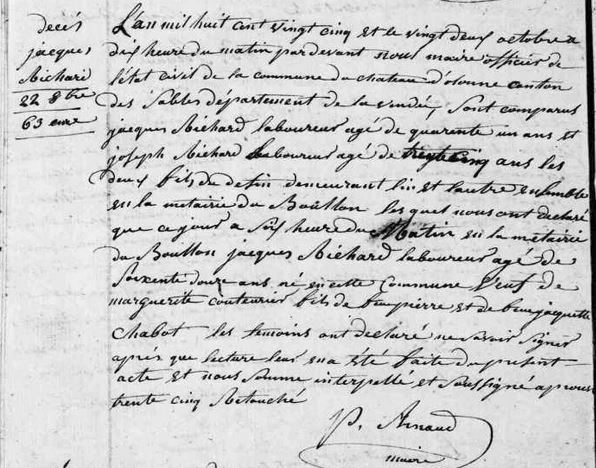 decés
jacques
Richard
22 8bre
63 eme
L'an mil huit cent vingt cinq et le vingt deux octobre a
dix heure du matin par devant nous maire officier de
l'état civil de la commune du chateau d'olonne canton
des Sables département de la vendé, sont comparus
jacques Richard laboureur agé de quarente un ans et
joseph Richard laboureur agé de trente cinq ans les
deux fils du defin demeurant lun et lautre ensemble
en la metairie du Boullon lesquel nous ont declaré
que ce jour a six heure du Matin en la métairie
du Boullon jacques Richard laboureur agé de
Soixente douze ans né en cette Commune veuf de
marguerite couturier fils de feu pierre et de feue jacquette
Chabot les temoins ont declaré ne savoir signer
après que lecture leur en a été faite du present
acte et nous somme interpelle et soussigné aprouvé
trente cinq Retouché
P. Arnaud
maire